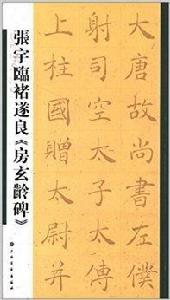 張宇臨褚遂良《房玄齡碑》
大唐故尚書左僕
射司空太子太傅
上柱國贈太尉并